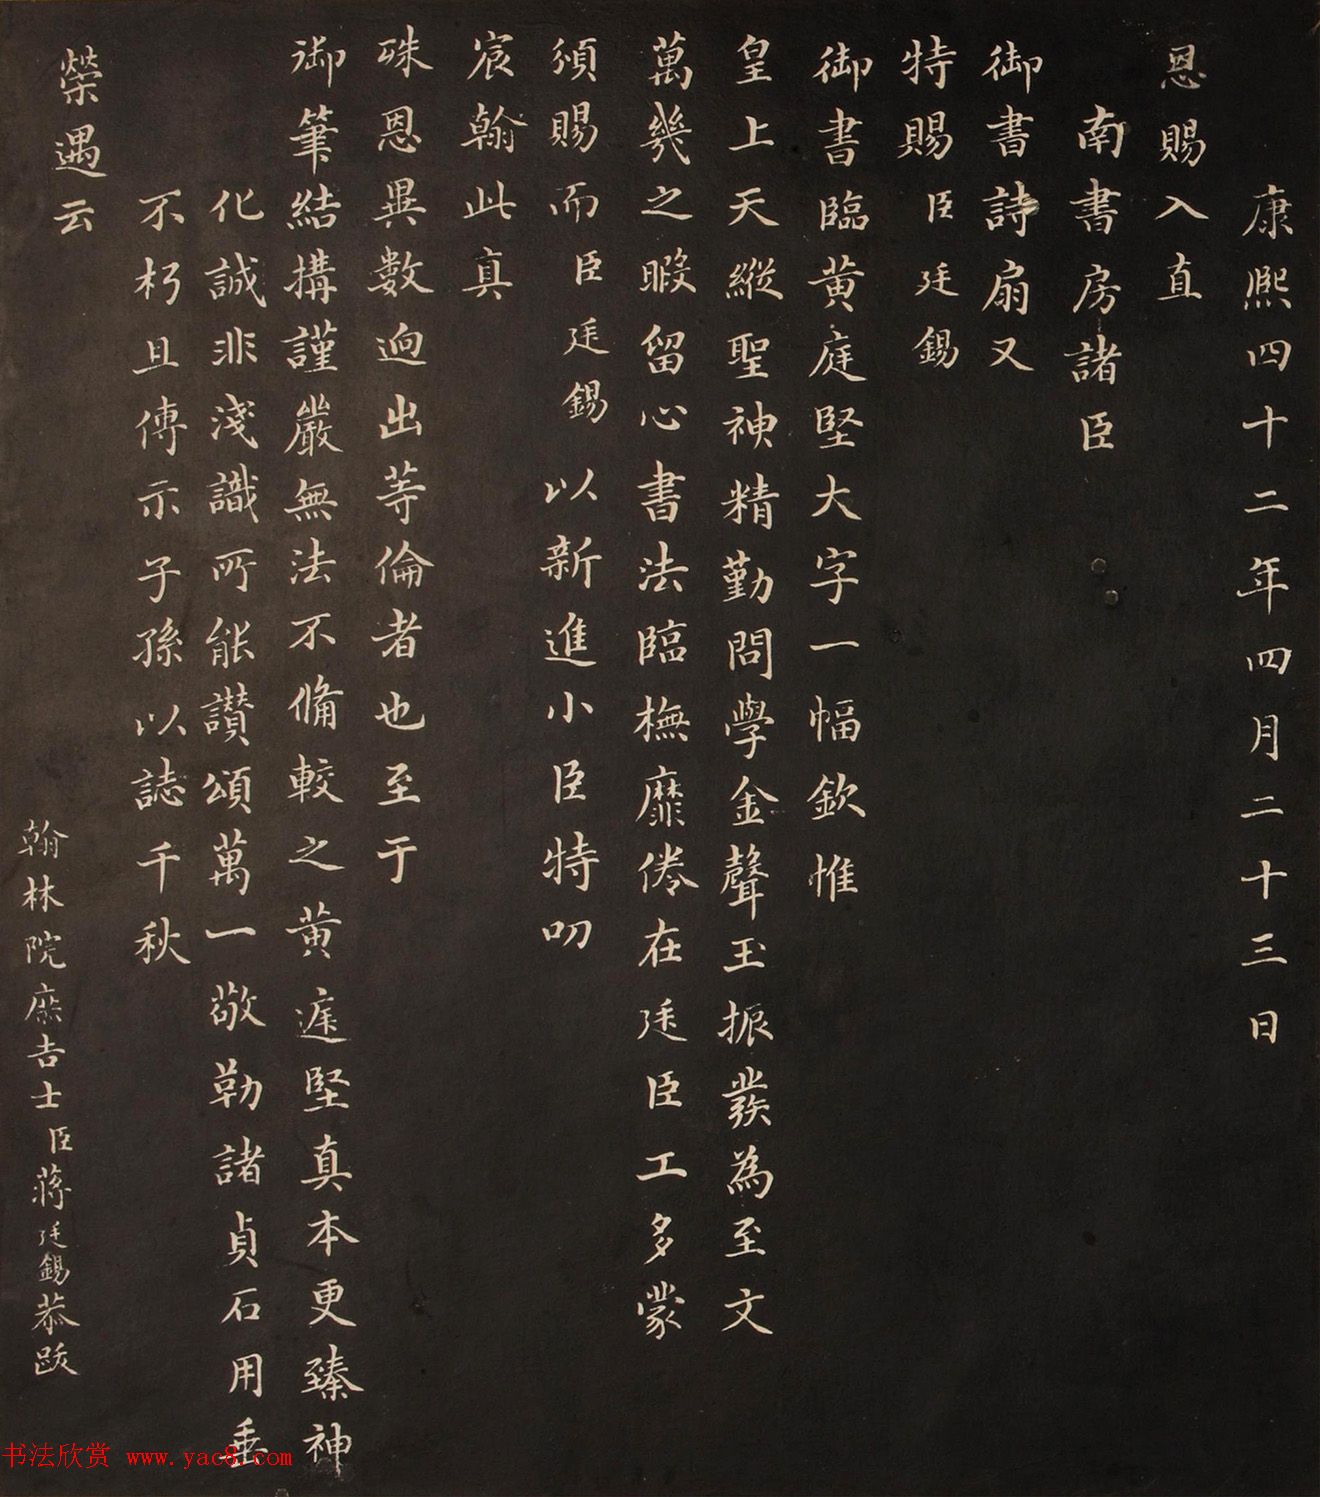 康熙四十二年四月二十三日
恩賜入直
南書房諸臣
御書詩扇又
特賜臣廷錫
御書臨黄庭堅大字一幅欽惟
皇上天縱聖神精勤問學金聲玉振發為至文
萬幾之暇留心書法臨橅靡倦在廷臣工多蒙
頒賜而臣廷錫以新進小臣特叨
宸翰此真
殊恩異數迥出等倫者也至于
御筆結搆謹嚴無法不備較之黄庭堅真本更臻神
化誠非淺識所能讚頌萬一敬勒諸貞石用垂
不朽且傳示子孫以誌千秋
榮遇云
翰林院庶吉士臣蔣廷錫恭跋
书法欣赏 www.yac8.com